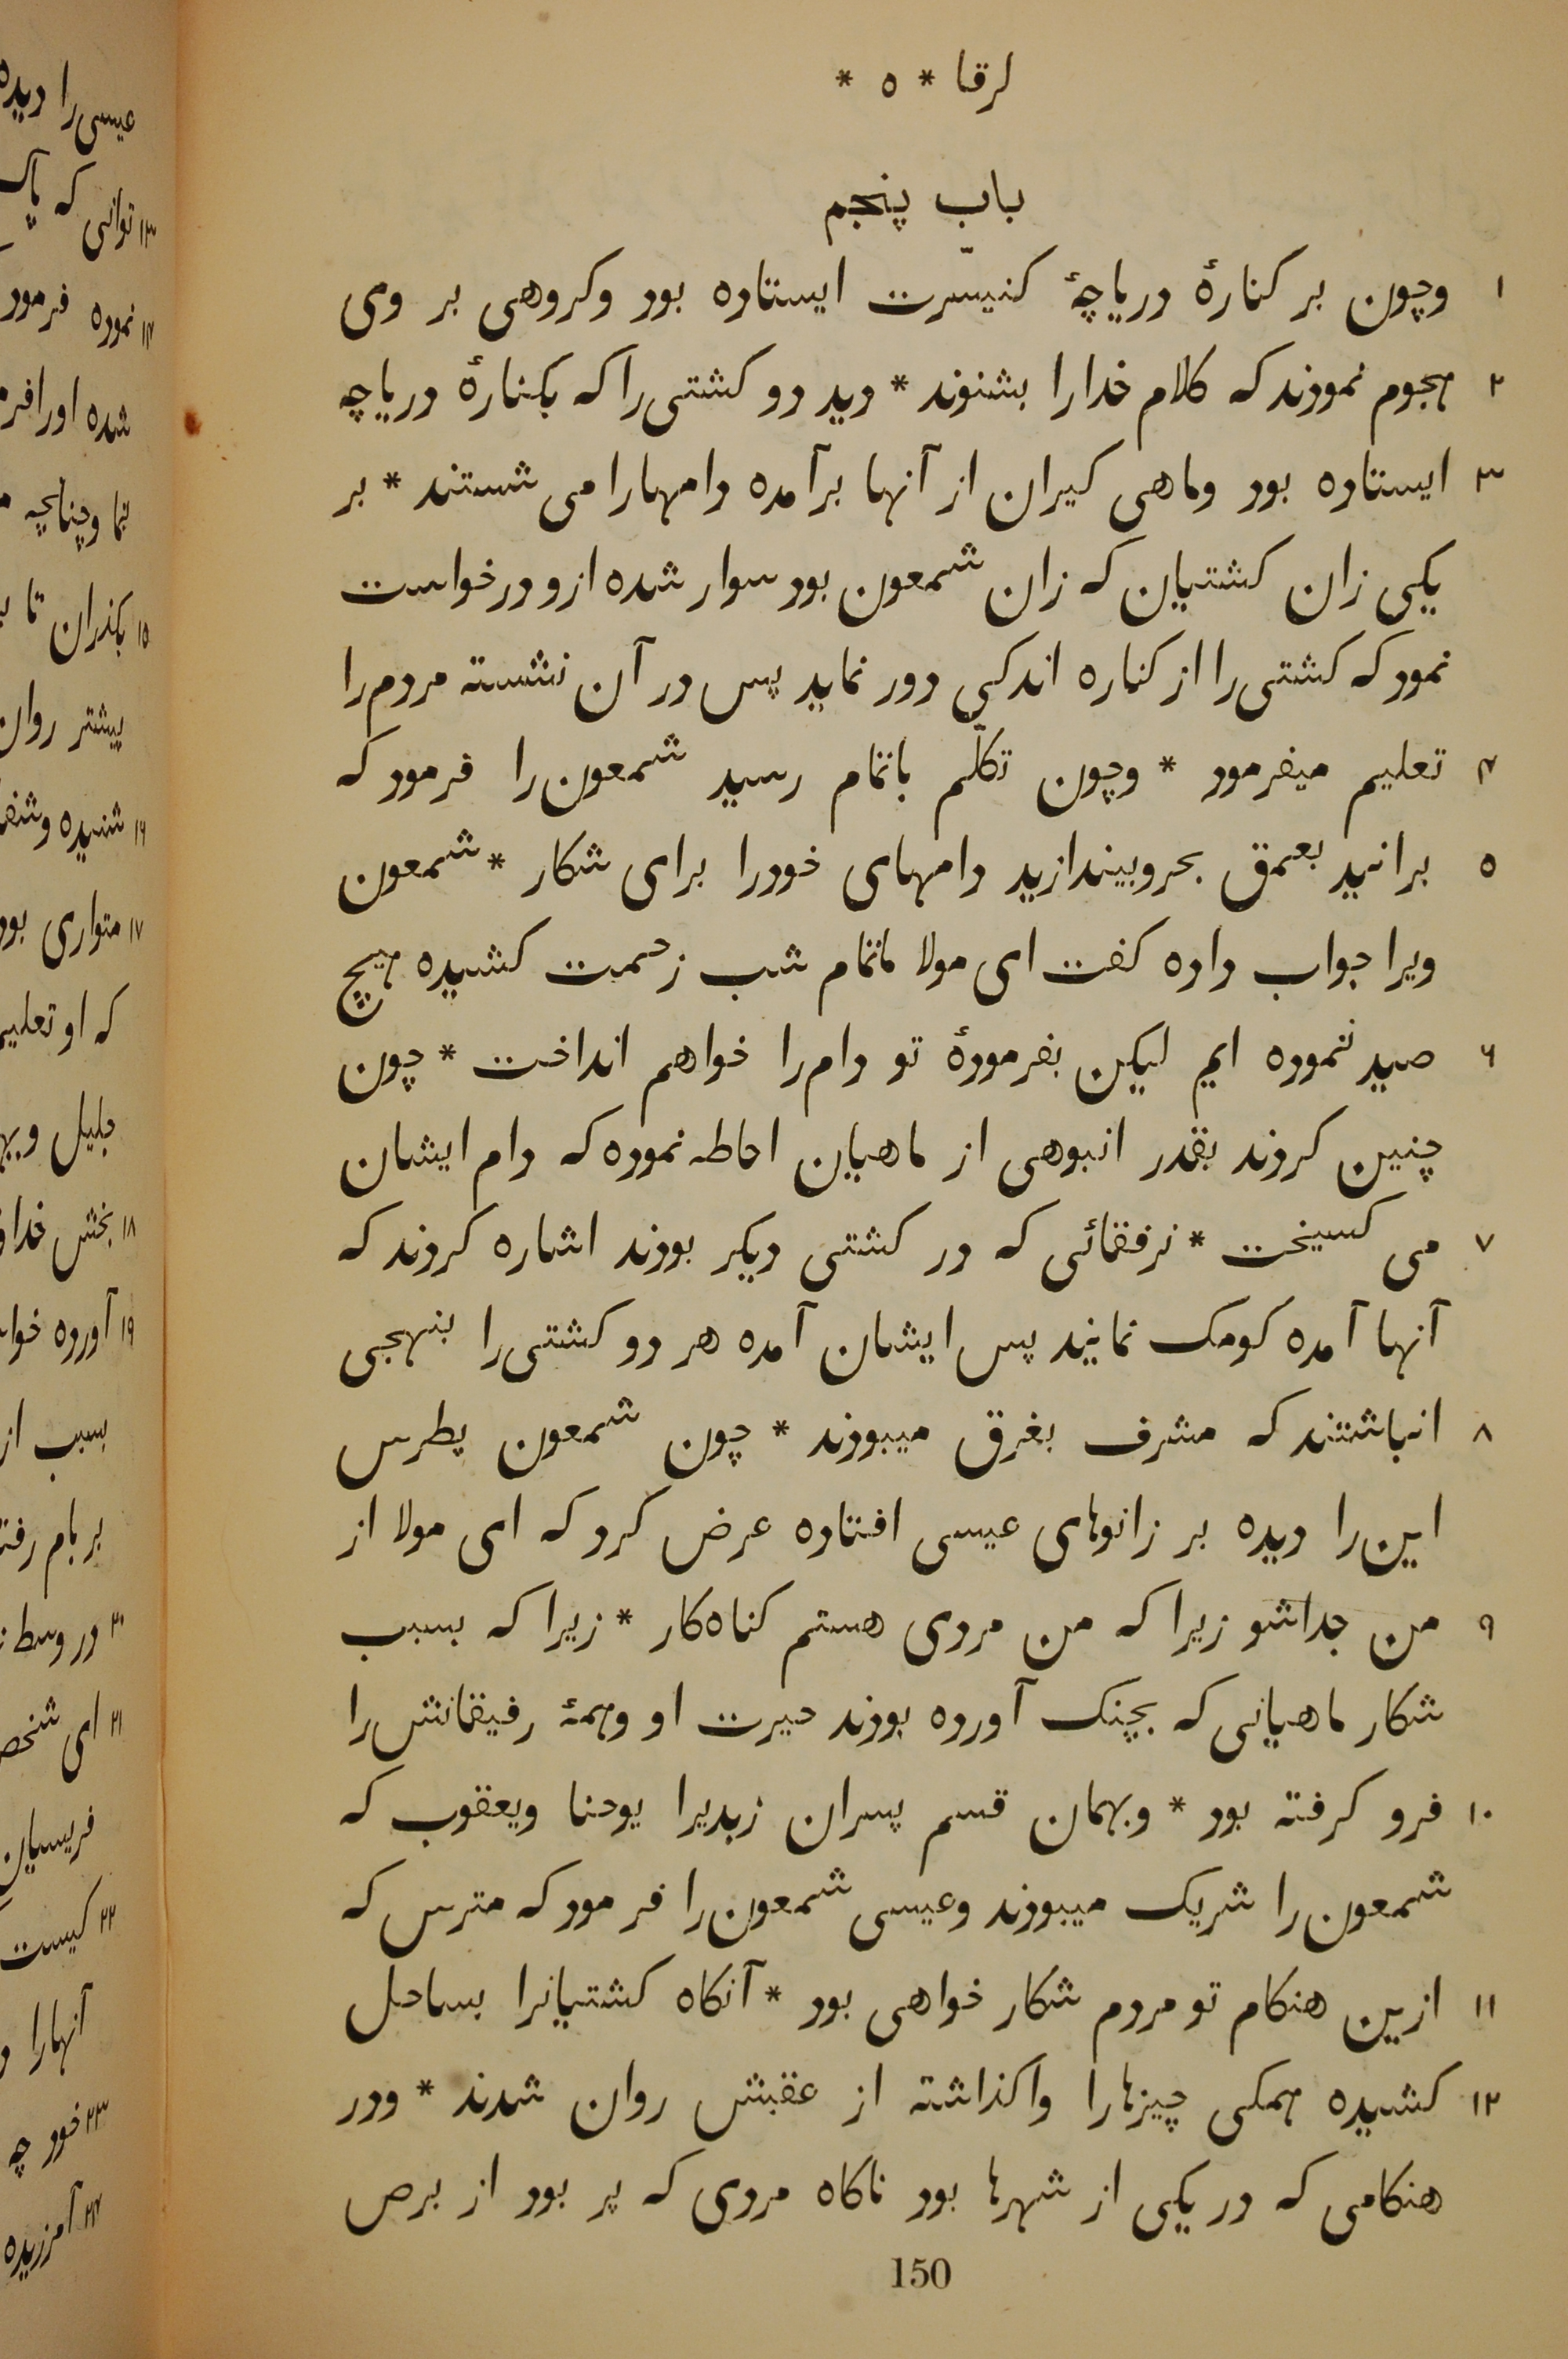 لوقا * ٥ *
باب پنجم
١ وچون بر کنارۀ دریاچۀ کنیسّرت ایستاده بود وکروهی بر وی
٢ هجوم نمودند که کلام خدارا بشنوند * دید دو کشتی را که بکنارۀ دریاچه
٣ ایستاده بود وماهی کیران از آنها برآمده دامهارا می شستند * بر
یکی زان کشتیان که زان شمعون بود سوار شده ازو درخواست
نمود که کشتی را از کناره اندکی دور نماید پس در آن نشسته مردم را
۴ تعلیم میفرمود * وچون تکلّم باتمام رسید شمعون را فرمود که
٥ برانید بعمق بحروبیندازید دامهای خودرا برای شکار * شمعون
ویرا جواب داده کفت ای مولا ماتمام شب زحمت کشیده هیچ
۶ صید ننموده ایم لیکن بفرمودۀ تو دام را خواهم انداخت * چون
چنین کردند بقدر انبوهی از ماهیان احاطه نموده که دام ایشان
٧ می کسیخت * برفقائی که در کشتی دیکر بودند اشاره کردند که
آنها آمده کومک نمایند پس ایشان آمده هر دو کشتی را بنهجی
٨ انباشتند که مشرف بغرق میبودند * چون شمعون پطرس
این را دیده بر زانوهای عیسی افتاده عرض کرد که ای مولا از
٩ من جداشو زیرا که من مردی هستم کناه‌کار * زیرا که بسبب
شکار ماهیانی که بچنک آورده بودند حیرت او وهمۀ رفیقانش را
١٠ فرو کرفته بود * وبهمان قسم پسران زبدیرا یوحنا ویعقوب که
شمعون را شریک میبودند وعیسی شمعون را فرمود که مترس که
١١ ازین هنکام تو مردم شکار خواهی بود * آنکاه کشتیانرا بساحل
١٢ کشیده همکی چیزهارا واکذاشته از عقبش روان شدند * ودر
هنکامی که در یکی از شهرها بود ناکاه مردی که پر بود از برص
150
عیسی را دیده
١٣ توانی که پاک
١۴ نموده فرمود
شده اورا
نما وچنانچه
١٥ بکذران تا
پیشتر روان
١۶ شنیده
١٧ متواری بود
که او تعلیم
جلیل
١٨ بخش
١٩ آورده
بسبب از
بر بام
٢٠ در وسط
٢١ ای
فریسیان
٢٢ کیست
آنهارا
٢٣ خود چه
٢۴ آمرزیده